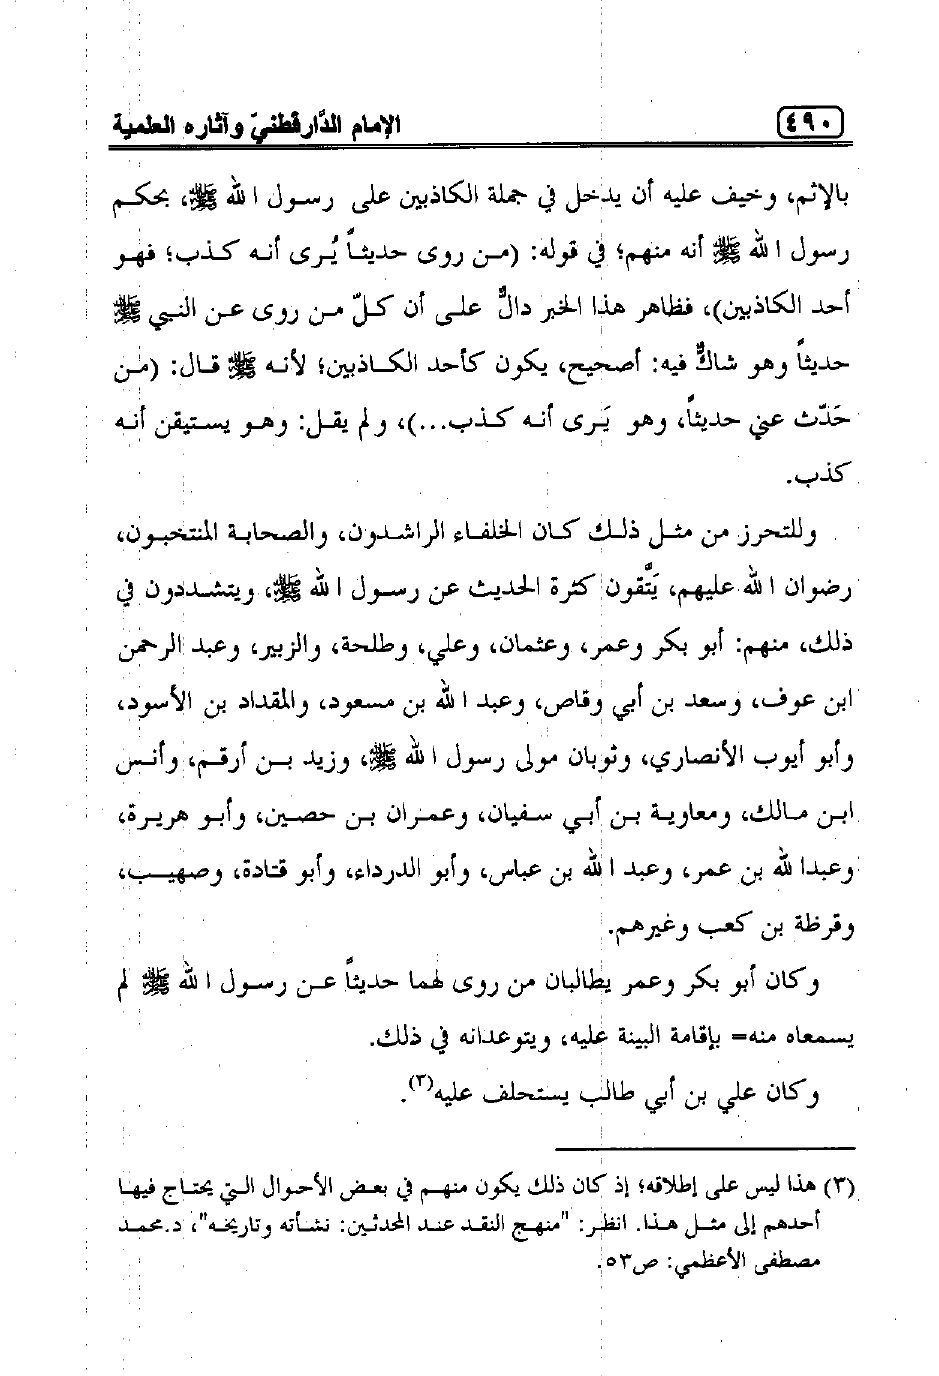 ٤٩٠
الإمام الدَّارقطنيّ وآثاره العلمية
بالإثم، وخيف عليه أن يدخل في جملة الكاذبين على رسول الله ﷺ، بحكم
رسول الله ﷺ أنه منهم؛ في قوله: (من روى حديثاً يُرى أنه كذب؛ فهو
أحد الكاذبين)، فظاهر هذا الخبر دالٌّ على أن كلّ من روى عن النبي ﷺ
حديثاً وهو شاكٌّ فيه: أصحيح، يكون كأحد الكاذبين؛ لأنه ﷺ قال: (من
حَدّث عني حديثاً، وهو يَرى أنه كذب...)، ولم يقل: وهو يستيقن أنه
كذب.
وللتحرز من مثل ذلك كان الخلفاء الراشدون، والصحابة المنتخبون،
رضوان الله عليهم، يَتَّقون كثرة الحديث عن رسول الله ﷺ، ويتشددون في
ذلك، منهم: أبو بكر وعمر، وعثمان، وعلي، وطلحة، والزبير، وعبد الرحمن
ابن عوف، وسعد بن أبي وقاص، وعبد الله بن مسعود، والمقداد بن الأسود،
وأبو أيوب الأنصاري، وثوبان مولى رسول الله ﷺ، وزيد بن أرقم، وأنس
ابن مالك، ومعاوية بن أبي سفيان، وعمران بن حصين، وأبو هريرة،
وعبدالله بن عمر، وعبد الله بن عباس، وأبو الدرداء، وأبو قتادة، وصهيب،
وقرظة بن كعب وغيرهم.
وكان أبو بكر وعمر يطالبان من روى لهما حديثاً عن رسول الله ﷺ لم
يسمعاه منه= بإقامة البينة عليه، ويتوعدانه في ذلك.
وكان علي بن أبي طالب يستحلف عليه(٣).
(٣) هذا ليس على إطلاقه؛ إذ كان ذلك يكون منهم في بعض الأحوال التي يحتاج فيها
أحدهم إلى مثل هذا. انظر: "منهج النقد عند المحدثين: نشأته وتاريخه"، د.محمد
مصطفى الأعظمي: ص٥٣.